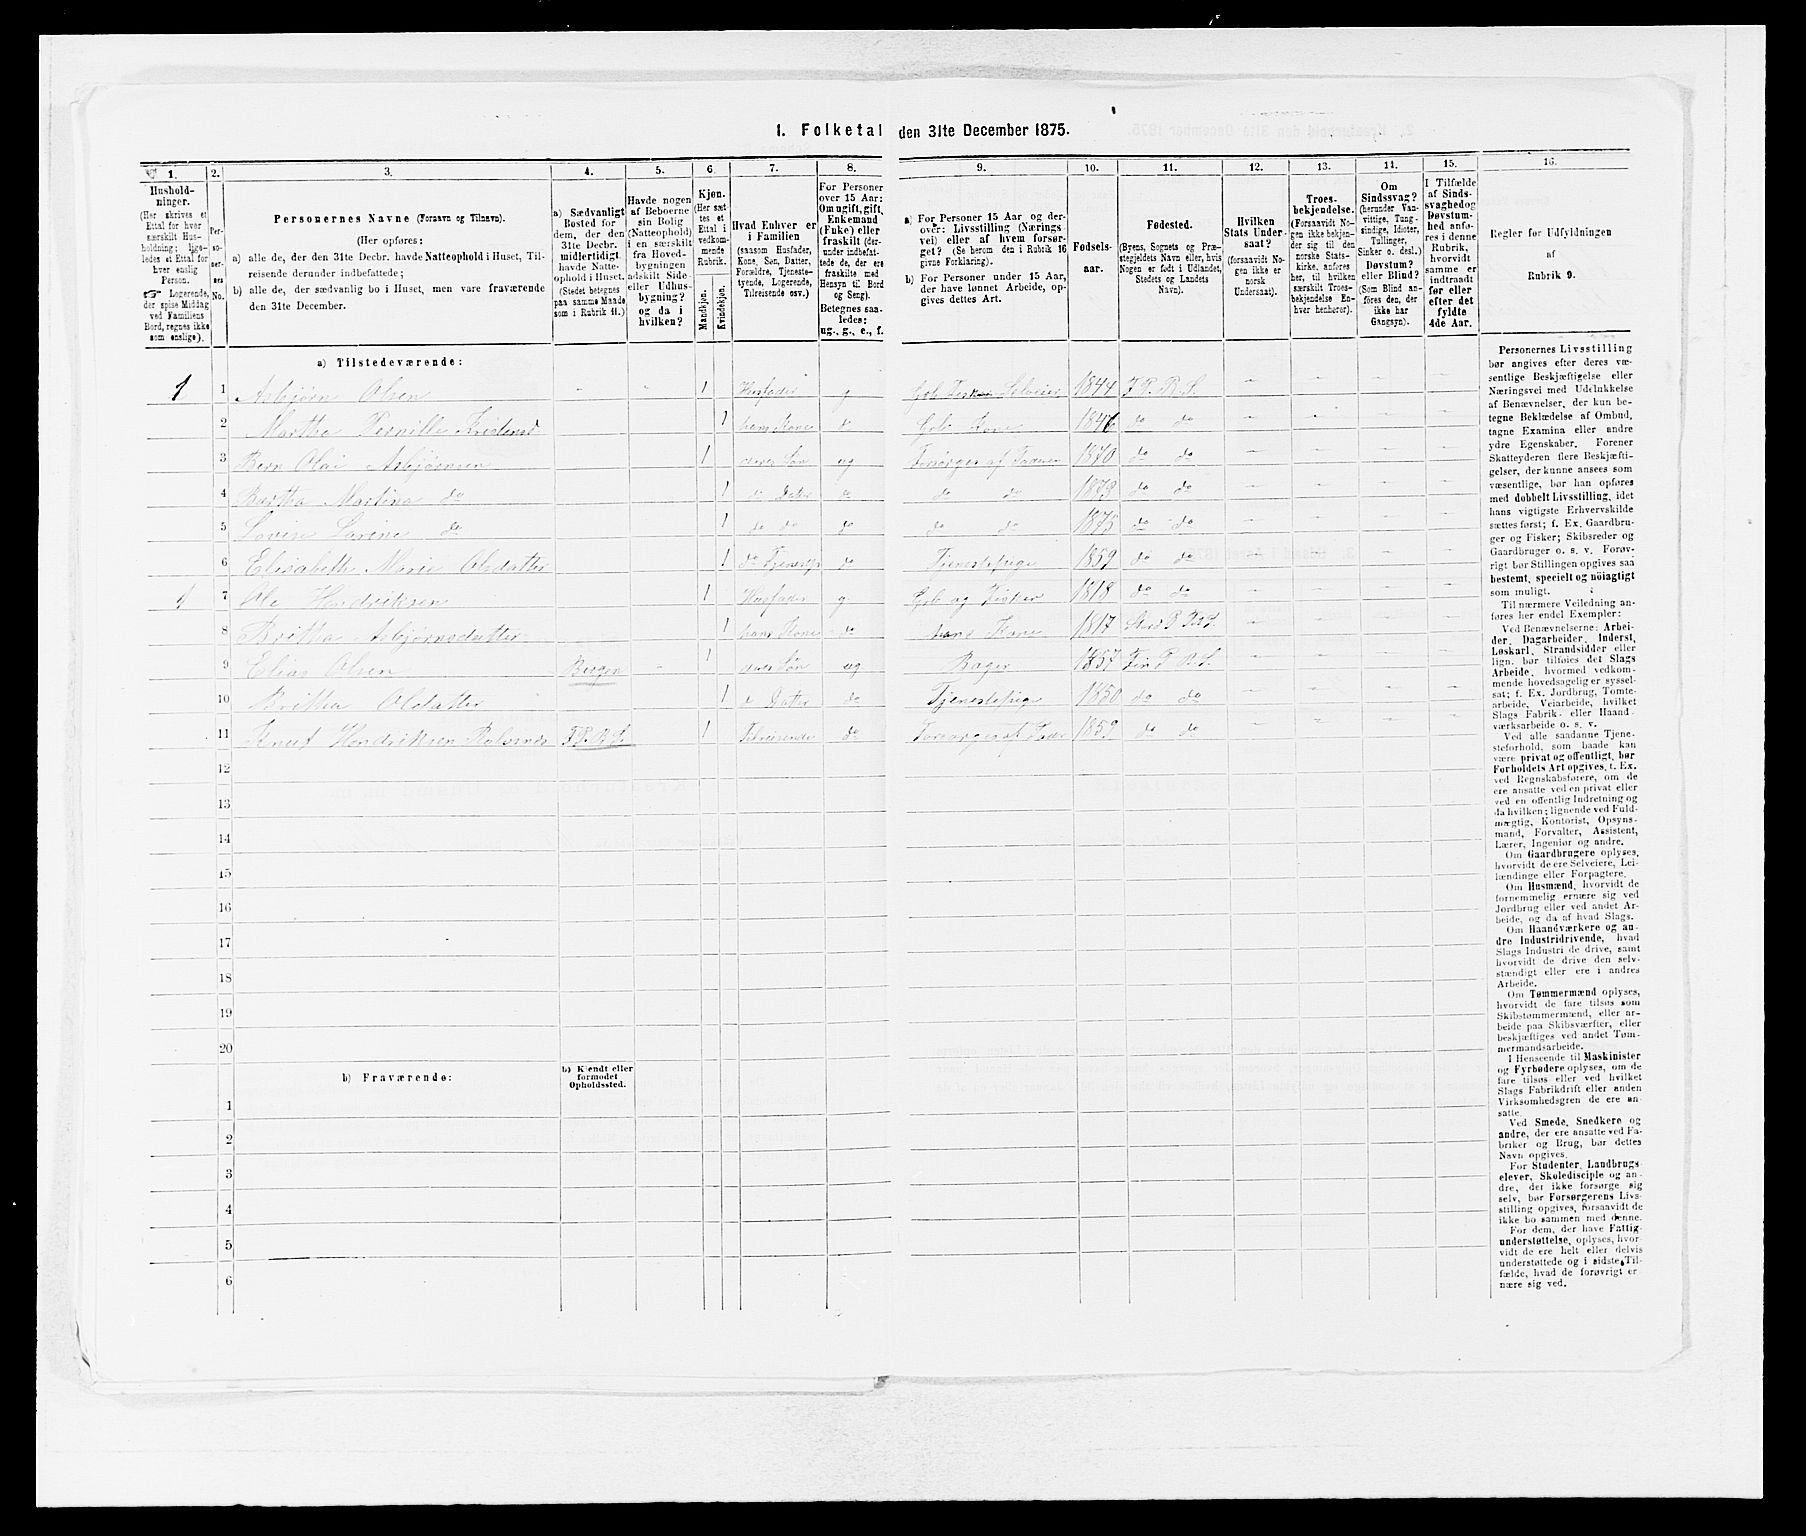 1. Folketal den 31te December 1875.
1. 2. 3. 4. 5. 6. 7. 8. 9. 10. 11. 12. 13. 14. 15. 16.
Hushold-
ninger.
(Her skrives et
Ettal for hver
særskilt Hus-
holdning; lige-
ledes et Ettal for
hver enslig
Person.
☞ Logerende,
der spise Middag
ved Familiens
Bord, regnes ikke
som enslige).
Per-
so-
ner-
nes
No.
Personernes Navne (Fornavn og Tilnavn).
(Her opføres:
a) alle de, der den 31te Decbr. havde Natteophold i Huset, Til-
reisende derunder indbefattede;
b) alle de, der sædvanlig bo i Huset, men vare fraværende
den 31te December.
a) Sædvanligt
Bosted for
dem, der den
31te Decbr.
midlertidigt
havde Natte-
ophold i Huset.
(Stedet betegnes
paa samme Maade
som i Rubrik 11.)
Havde nogen
af Beboerne
sin Bolig
(Natteophold)
i en særskilt
fra Hoved-
bygningen
adskilt Side-
eller Udhus-
bygning?
og da i
hvilken?
Kjøn.
(Her sæt-
tes et
Ettal i
vedkom-
mende
Rubrik.
Mandkjøn.
Kvindekjøn.
Hvad Enhver er
i Familien
(saasom Husfader,
Kone, Søn, Datter,
Forældre, Tjeneste-
tyende, Logerende,
Tilreisende osv.)
For Personer
over 15 Aar:
Om ugift, gift,
Enkemand
(Enke) eller
fraskilt (der-
under indbefat-
tede de, der ere
fraskilte med
Hensyn til Bord
og Seng).
Betegnes saa-
ledes:
ug., g., e., f.
a) For Personer 15 Aar og der-
over: Livsstilling (Nærings-
vei) eller af hvem forsør-
get? (Se herom den i Rubrik 16
givne Forklaring).
b) For Personer under 15 Aar,
der have lønnet Arbeide, op-
gives dettes Art.
Fødsels-
aar.
Fødested.
(Byens, Sognets og Præ-
stegjeldets Navn eller, hvis
Nogen er født i Udlandet,
Stedets og Landets
Navn).
Hvilken
Stats Under-
saat?
(forsaavidt No-
gen ikke er
norsk
Undersaat).
Troes-
bekjendelse.
(Forsaavidt No-
gen ikke bekjen-
der sig til den
norske Stats-
kirke, anføres
her, til hvilken
særskilt Troes-
bekjendelse En-
hver henhører).
Om
Sindssvag?
(herunder Van-
vittige, Tung-
sindige, Idioter,
Tullinger,
Sinker o. desl.,)
Døvstum?
eller Blind?
(Som Blind an-
føres den, der
ikke har
Gangsyn).
I Tilfælde
af Sinds-
svaghed og
Døvstum-
hed anfø-
res i denne
Rubrik,
hvorvidt
samme er
indtraadt
før eller
efter det
fyldte
4de Aar.
Regler for Udfyldningen
af
Rubrik 9.
a) Tilstedeværende:
1 1 Asbjørn Olsen 1 Husfader g Selveier 1844 F. P. B. S.
2 Martha Pernille 1 hans Kone do Gb. Kone 1846 do do
3 Bern Olai Asbjørnsen 1 deres Søn ug Forsørges af Faderen 1870 do do
4 Bertha Martina do 1 do Dater do do do 1873 do do
5 Lovise Lorine do 1 do do do do do 1875 do do
6 Elisabeth Marie Olsdatter 1 do do Tjenestepige 1859 do do
1 7 Ole Hendriksen 1 Husfader g. Grb og Fisker 1818 do do
8 Britha Asbjørnsdatter 1 hans Kone do hans Kone 1817
9 Elias Olsen Bergen 1 deres Søn ug Bager 1857
10 Britha Olsdatter 1 Dater do Tjenestepige 1850 do do
11 Knut Hendriksen F. P. B. S. 1 Tilreisende do Forsørges af Fader 1859 do do
12
13
14
15
16
17
18
19
20
b) Fraværende:
b) Kjendt eller
formodet
Opholdssted.
1
2
3
4
5
6
Personernes Livsstilling
bør angives efter deres væ-
sentlige Beskjæftigelse eller
Næringsvei med Udelukkelse
af Benævnelser, der kun be-
tegne Beklædelse af Ombud,
tagne Examina eller andre
ydre Egenskaber. Forener
Skatteyderen flere Beskjæfti-
gelser, der kunne ansees som
væsentlige, bør han opføres
med dobbelt Livsstilling, idet
hans vigtigste Erhvervskilde
sættes først; f. Ex. Gaardbru-
ger og Fisker; Skibsreder og
Gaardbruger o. s. v. Forøv-
rigt bør Stillingen opgives saa
bestemt, specielt og nöiagtigt
som muligt.
Til nærmere Veiledning an-
føres her endel Exempler:
Ved Benævnelserne: Arbei-
der, Dagarbeider, Inderst,
Løskarl, Strandsidder eller
lign. bør tilføies det Slags
Arbeide, hvormed vedkom-
mende hovedsagelig er syssel-
sat; f. Ex. Jordbrug, Tomte-
arbeide, Veiarbeide, hvilket
Slags Fabrik- eller Haand-
værksarbeide o. s. v.
Ved alle saadanne Tjene-
steforhold, som baade kan
være privat og offentligt, bør
Forholdets Art opgives, f. Ex.
ved Regnskabsførere, om de
ere ansatte ved en privat eller
ved en offentlig Indretning og
da hvilken; lignende ved Fuld-
mægtig, Kontorist, Opsyns-
mand, Forvalter, Assistent,
Lærer, Ingeniør og andre.
Om Gaardbrugere oplyses,
hvorvidt de ere Selveiere, Lei-
lændinge eller Forpagtere.
Om Husmænd, hvorvidt de
fornemmelig ernære sig ved
Jordbrug eller ved andet Ar-
beide, og da af hvad Slags.
Om Haandværkere og an-
dre Industridrivende, hvad
Slags Industri de drive, samt
hvorvidt de drive den selv-
stændigt eller ere i andres
Arbeide.
Om Tømmermænd oplyses,
hvorvidt de fare tilsøs som
Skibstømmermænd, eller ar-
beide paa Skibsværfter, eller
beskjæftiges ved andet Tøm-
mermandsarbeide.
I Henseende til Maskinister
og Fyrbødere oplyses, om de
fare tilsøs eller ved hvilket
Slags Fabrikdrift eller anden
Virksomhedsgren de ere an-
satte.
Ved Smede, Snedkere og
andre, der ere ansatte ved Fa-
briker og Brug, bør dettes
Navn opgives.
For Studenter, Landbrugs-
elever, Skoledisciple og an-
dre, der ikke forsørge sig
selv, bør Forsørgerens Livs-
stilling opgives, forsaavidt de
ikke bo sammen med denne.
For dem, der have Fattig-
understøttelse, oplyses, hvor-
vidt de ere helt eller delvis
understøttede og i sidste Til-
fælde, hvad de forøvrigt er-
nære sig ved.